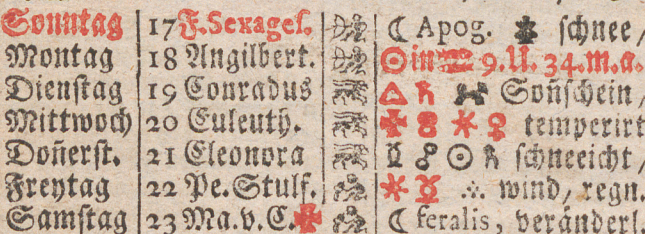 Sonntag 17 F. Sexages. ☾ Apog. schnee /
Montag 18 Angilbert. ☉ in ♒ 9. U. 34. m. a.
Dienstag 19 Conradus △ ♄ Soñschein /
Mittwoch 20 Euleuth. ✠ ⚹ ♀ temperirt
Doñerst. 21 Eleonora ☍ ☉ schneeicht /
Freytag 22 Pe. Stulf. ⚹ ☿ wind / regn.
Samstag 23 Ma. v. C. ✠ ☾ feralis, veränderl.